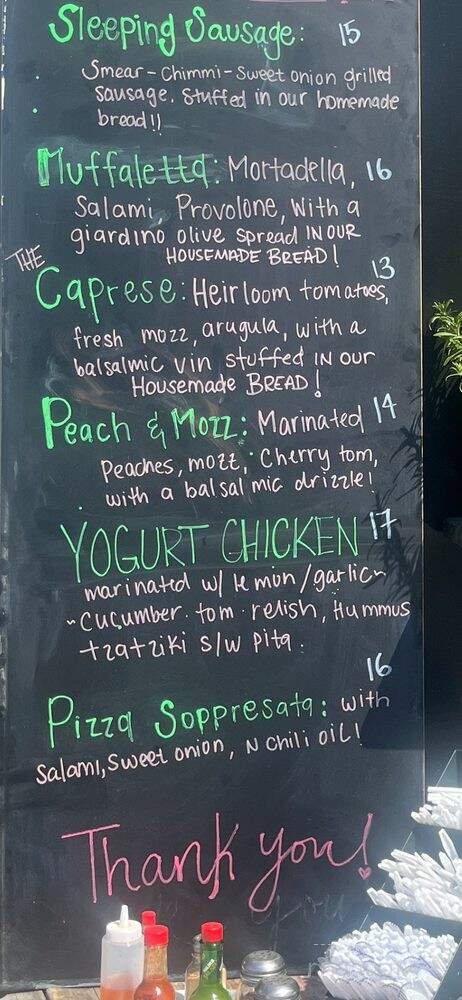 Sleeping Sausage: 15
Smear - Chimmi - Sweet onion grilled
sausage. Stuffed in our homemade
bread!!
Muffaletta: Mortadella, 16
Salami, Provolone, with a
giardino olive spread IN OUR
HOUSEMADE BREAD!
THE
Caprese: Heirloom tomatoes, 13
fresh mozz, arugula, with a
balsalmic vin stuffed IN our
Housemade BREAD!
Peach & Mozz: Marinated 14
Peaches, mozz, Cherry tom,
with a balsalmic drizzle!
YOGURT CHICKEN 17
marinated w/ lemon/garlic~
~cucumber. tom. relish, Hummus
tzatziki s/w pita.
16
Pizza Soppresata: with
Salami, Sweet onion, N chili oil!
Thank you!